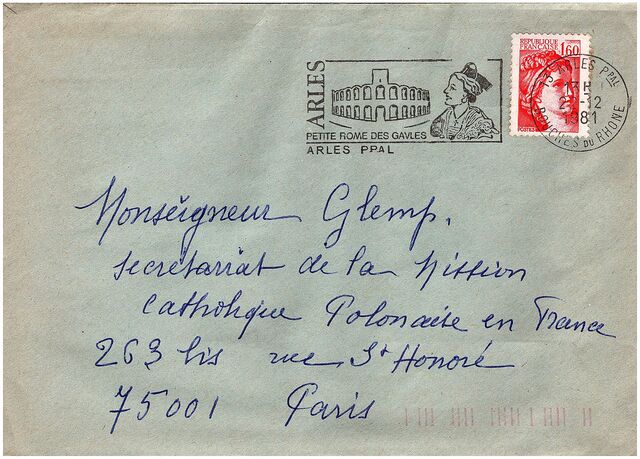 REPUBLIQUE FRANÇAISE 1,60
ARLES
PETITE ROME DES GAVLES
ARLES PPAL
ARLES PPAL
13H
12
1981
BOUCHES DU RHONE
POSTES
Monseigneur Glemp.
secrétariat de la Mission
Catholique Polonaise en France
263 bis rue St Honoré
75001 Paris